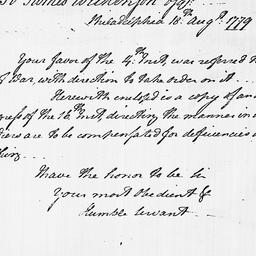 James Wilkinson Esqr.
Philadelphia 18th Augt. 1779
Your favor of the 4th Inst, was referred to
of War, with direction to take order on it...
Herewith enclosed is a copy of an
gress of the 16th Inst directing the manner in
diers are to be compensated for deficiencies
thing...
I have the honor to be Sir
Your most Obedient &
Humble Servant